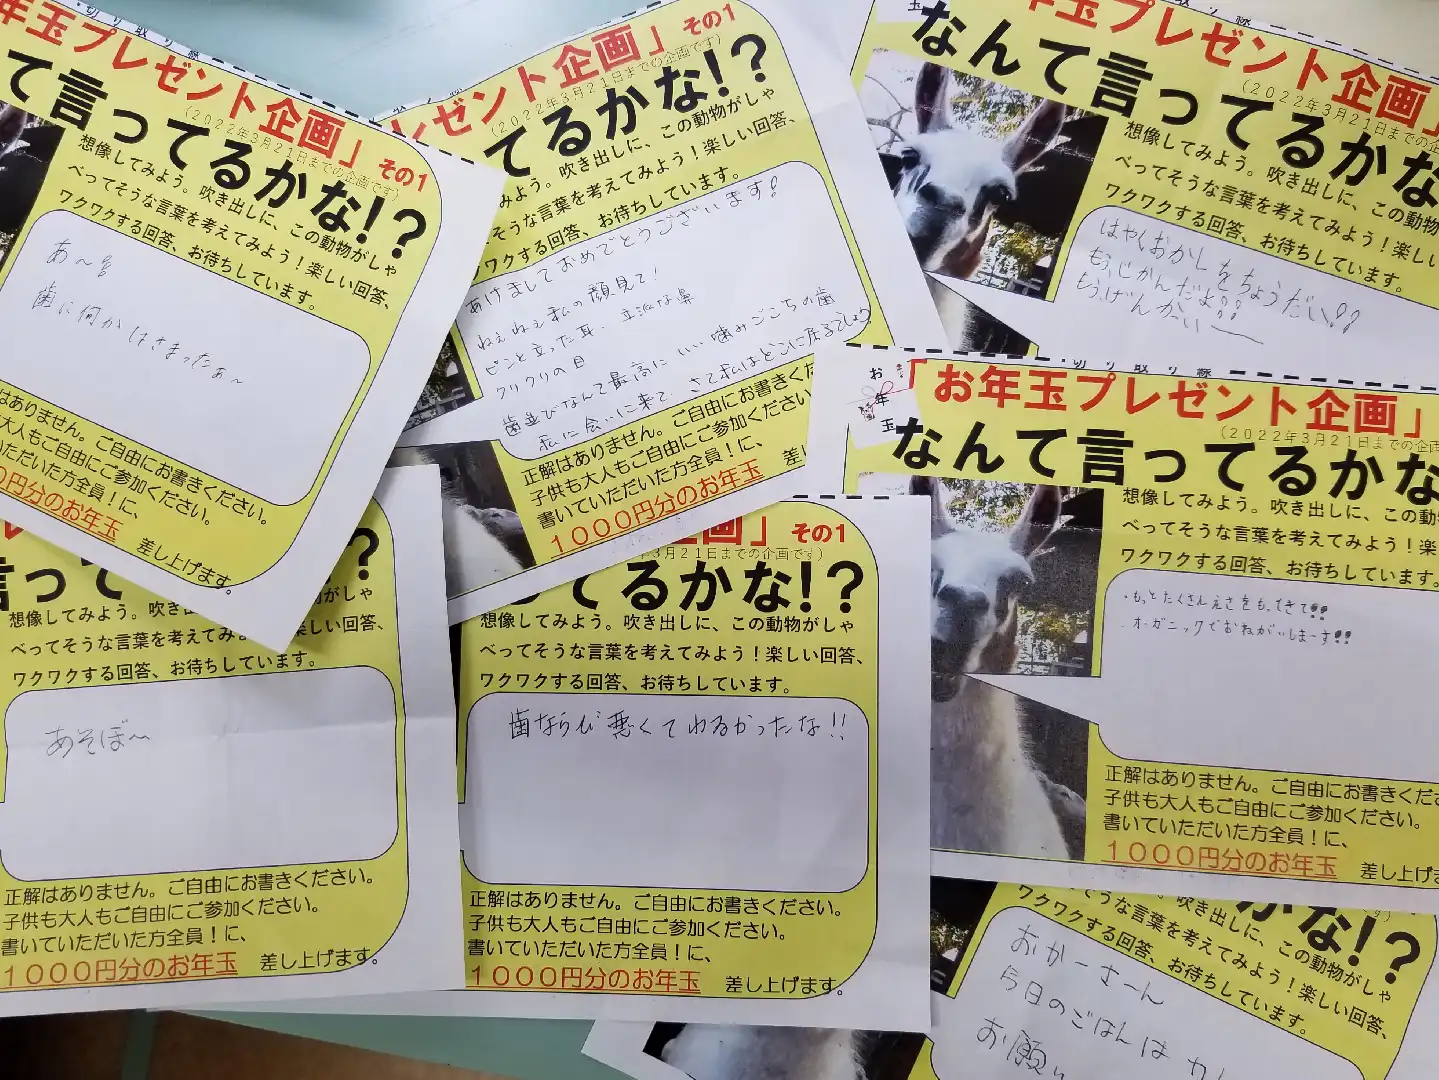 切り取り線
年玉プレゼント企画」その1
(2022年3月21日までの企画です)
て言ってるかな!?
想像してみよう。吹き出しに、この動物がしゃ
べってそうな言葉を考えてみよう！楽しい回答、
ワクワクする回答、お待ちしています。
あ〜
歯に何かはさまったぁ〜
はありません。ご自由にお書きください。
大人もご自由にご参加ください。
いただいた方全員！に、
0円分のお年玉 差し上げます。
レゼント企画」その1
(2022年3月21日までの企画です)
てるかな!?
みよう。吹き出しに、この動物がしゃ
そうな言葉を考えてみよう！楽しい回答、
ワクワクする回答、お待ちしています。
あけましておめでとうございます!
ねぇねぇ私の顔見て!
ピンと立った耳、立派な鼻
クリクリの目
歯並びなんて最高にいい噛みごこちの歯
私に会いに来て さて私はどこに居るでしょう?
正解はありません。ご自由にお書きくだ
子供も大人もご自由にご参加ください。
書いていただいた方全員！に、
1000円分のお年玉 差し
切り取り線
玉
年玉プレゼント企画」
(2022年3月21日までの企
なんて言ってるかな
想像してみよう。吹き出しに、この動物
べってそうな言葉を考えてみよう！楽し
ワクワクする回答、お待ちしています。
はやくおかしをちょうだい!!
もうじかんだよ!!
もうげんかいー
切り取り線
お年玉
「お年玉プレゼント企画」
(2022年3月21日までの企画
なんて言ってるかな
想像してみよう。吹き出しに、この動物
べってそうな言葉を考えてみよう！楽
ワクワクする回答、お待ちしています。
・もっとたくさんえさをもってきて!!
・オーガニックでおねがいしまーす!!
正解はありません。ご自由にお書きくだ
子供も大人もご自由にご参加ください。
書いていただいた方全員！に、
1000円分のお年玉 差し上げま
言って
?
想像してみよう。吹き出 物がしゃ
べってそうな言葉を考えてみ 楽しい回答、
ワクワクする回答、お待ちしています。
あそぼ〜
正解はありません。ご自由にお書きください。
子供も大人もご自由にご参加ください。
書いていただいた方全員！に、
1000円分のお年玉 差し上げます。
企画」その1
年3月21日までの企画です)
てるかな!?
想像してみよう。吹き出しに、この動物がしゃ
べってそうな言葉を考えてみよう！楽しい回答、
ワクワクする回答、お待ちしています。
歯ならび悪くてわるかったな!!
正解はありません。ご自由にお書きください。
子供も大人もご自由にご参加ください。
書いていただいた方全員！に、
1000円分のお年玉 差し上げます。
かな!?
想像してみよう。吹き出しに、この動物がしゃ
べってそうな言葉を考えてみよう！楽しい回答、
ワクワクする回答、お待ちしています。
おかーさーん
今日のごはんは
お願い